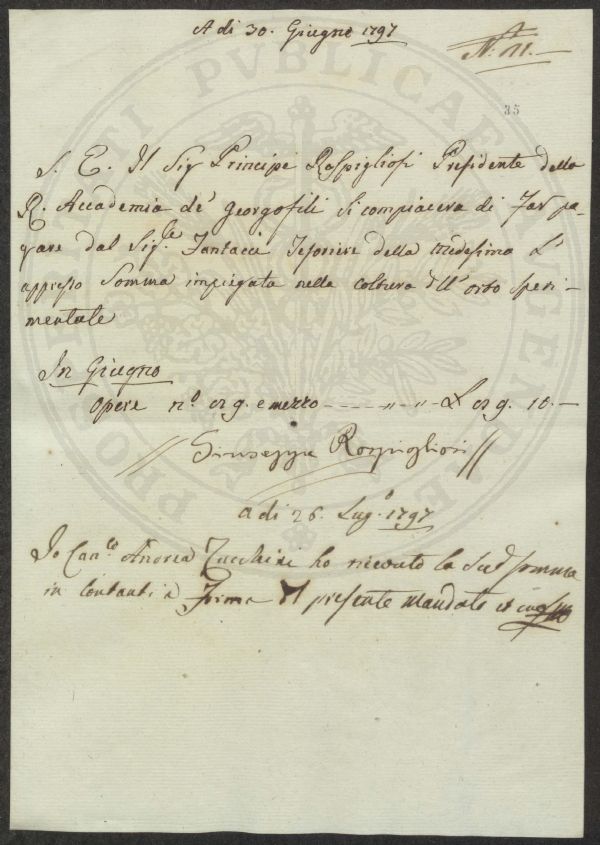 A di 30. Giugno 1797
N. 11.
35
S. E. Il Sig Principe Rospigliosi Presidente della
R. Accademia de' Georgofili si compiacerà di Far pa-
gare dal Sig.le Fantacci Tesoriere della Medesima L'
appresso Somma impiegata nella coltura dell' orto Speri-
mentale
In Giugno
Opere n.o 29. e mezzo ---- " - " - £ 29. 10. -
Giuseppe Rospigliosi
A di 26. Lug.o 1797
Io Can.co Andrea Zucchini ho ricevuto la Sud. somma
in Contanti a Forma del presente Mandato
PROSPERITATI PVBLICAE AVGENDAE